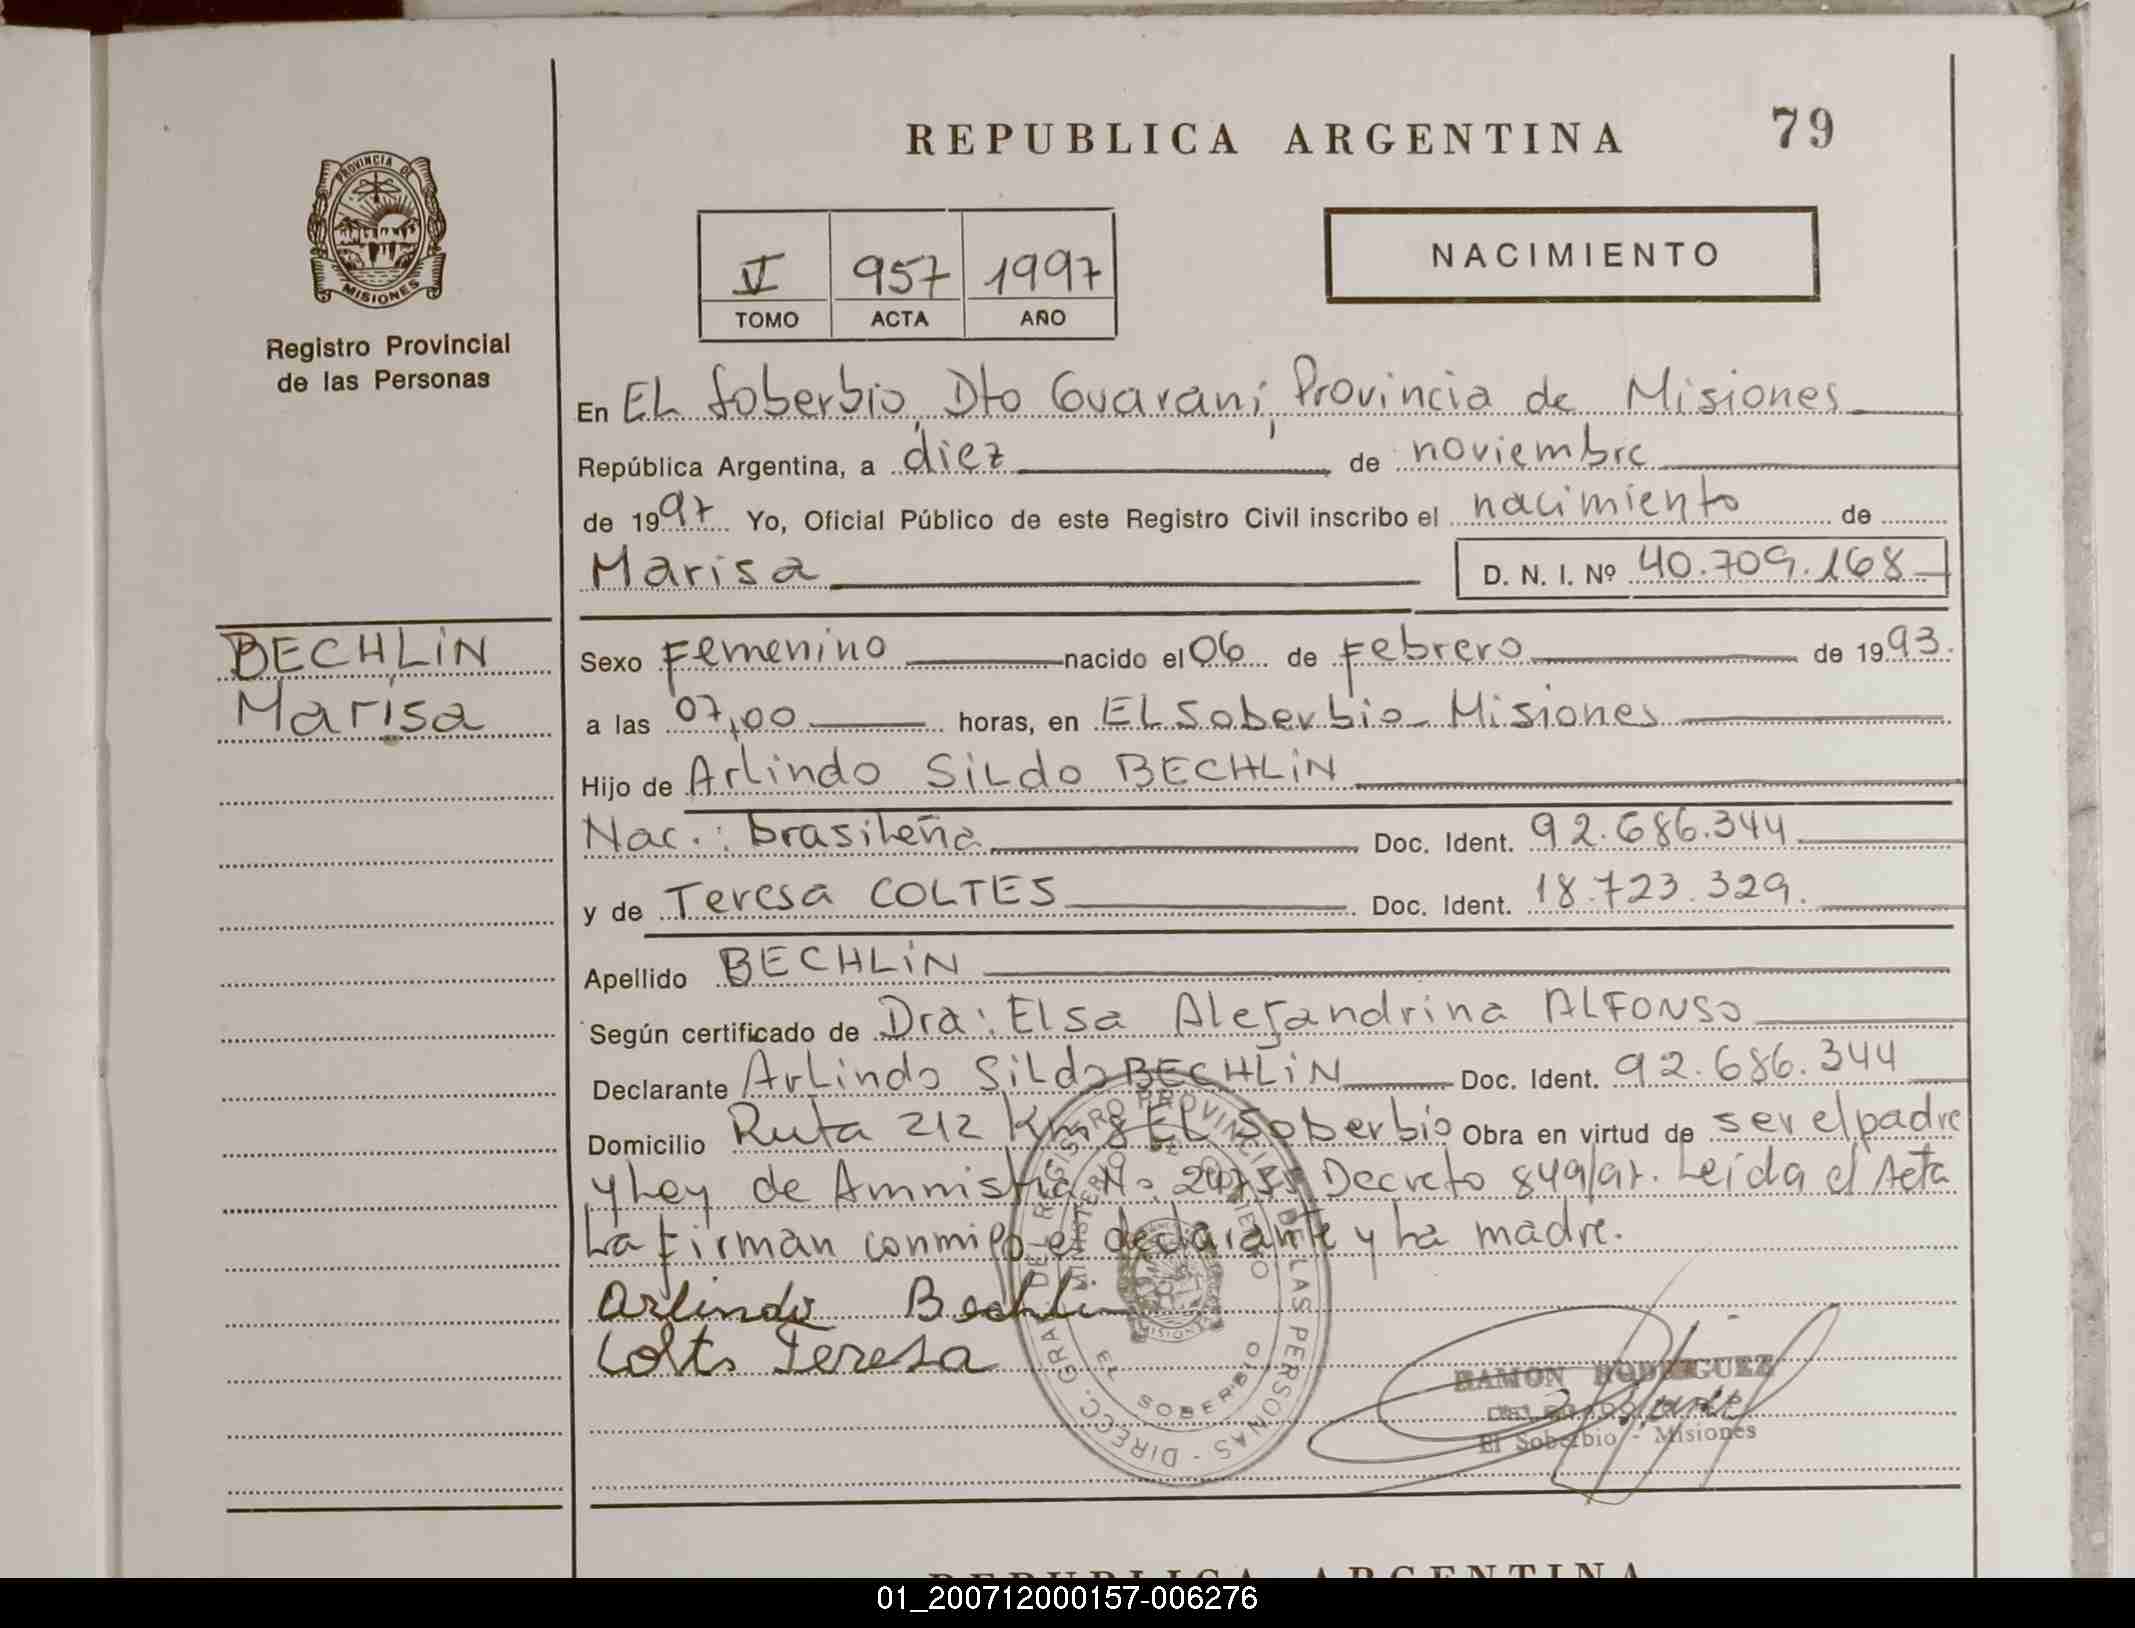 REPUBLICA ARGENTINA 79
PROVINCIA DE
MISIONES
Registro Provincial
de las Personas
NACIMIENTO
V 957 1997
TOMO ACTA AÑO
En EL Soberbio, Dto Guaraní, Provincia de Misiones
República Argentina, a diez de noviembre
de 1997 Yo, Oficial Público de este Registro Civil inscribo el nacimiento de
Marisa D. N. I. Nº 40.709.168
BECHLIN
Marisa
Sexo Femenino nacido el 06 de Febrero de 1993.
a las 07,00 horas, en EL Soberbio Misiones
Hijo de Arlindo SiLdo BECHLiN
Nac.: brasileña Doc. Ident. 92.686.344
y de Teresa COLTES Doc. Ident. 18.723.329.
Apellido BECHLiN
Según certificado de Dra: Elsa Alejandrina ALFONSO
Declarante Arlindo SiLdo BECHLiN Doc. Ident. 92.686.344
Domicilio Ruta 212 Km 8 EL Soberbio Obra en virtud de ser el padre
y Ley de Amnistia Nº Decreto 849/97. Leida el Acta
La firman conmigo el declarante y La madre.
Arlindo Bechlin
Teresa
DIRECC. GRAL. DE REGISTRO PROVINCIAL DE LAS PERSONAS
MINISTERIO DE GOBIERNO
SOBERBIO
MISIONES
RAMON RODRIGUEZ
El Soberbio - Misiones
REPUBLICA ARGENTINA
01_200712000157-006276